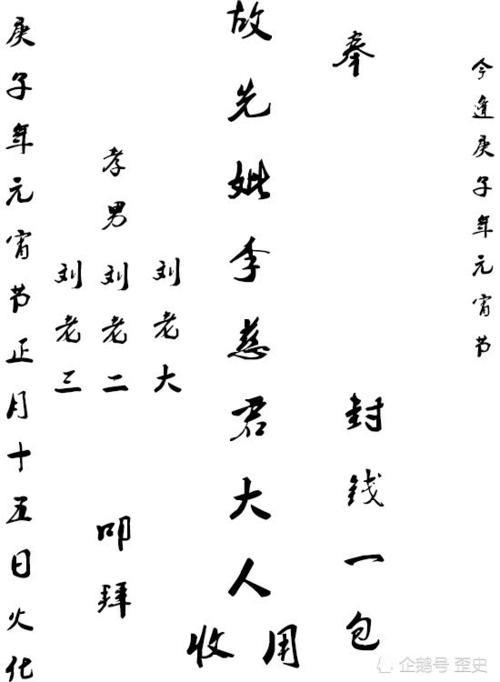 今逢庚子年元宵节
奉
封钱一包
故先妣李慈君大人
收用
刘老大
孝男刘老二
叩拜
刘老三
庚子年元宵节正月十五日火化
企鹅号 歪史